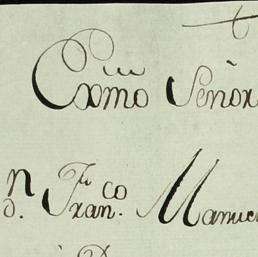 Exmo Señor
n Fran.co Manuel